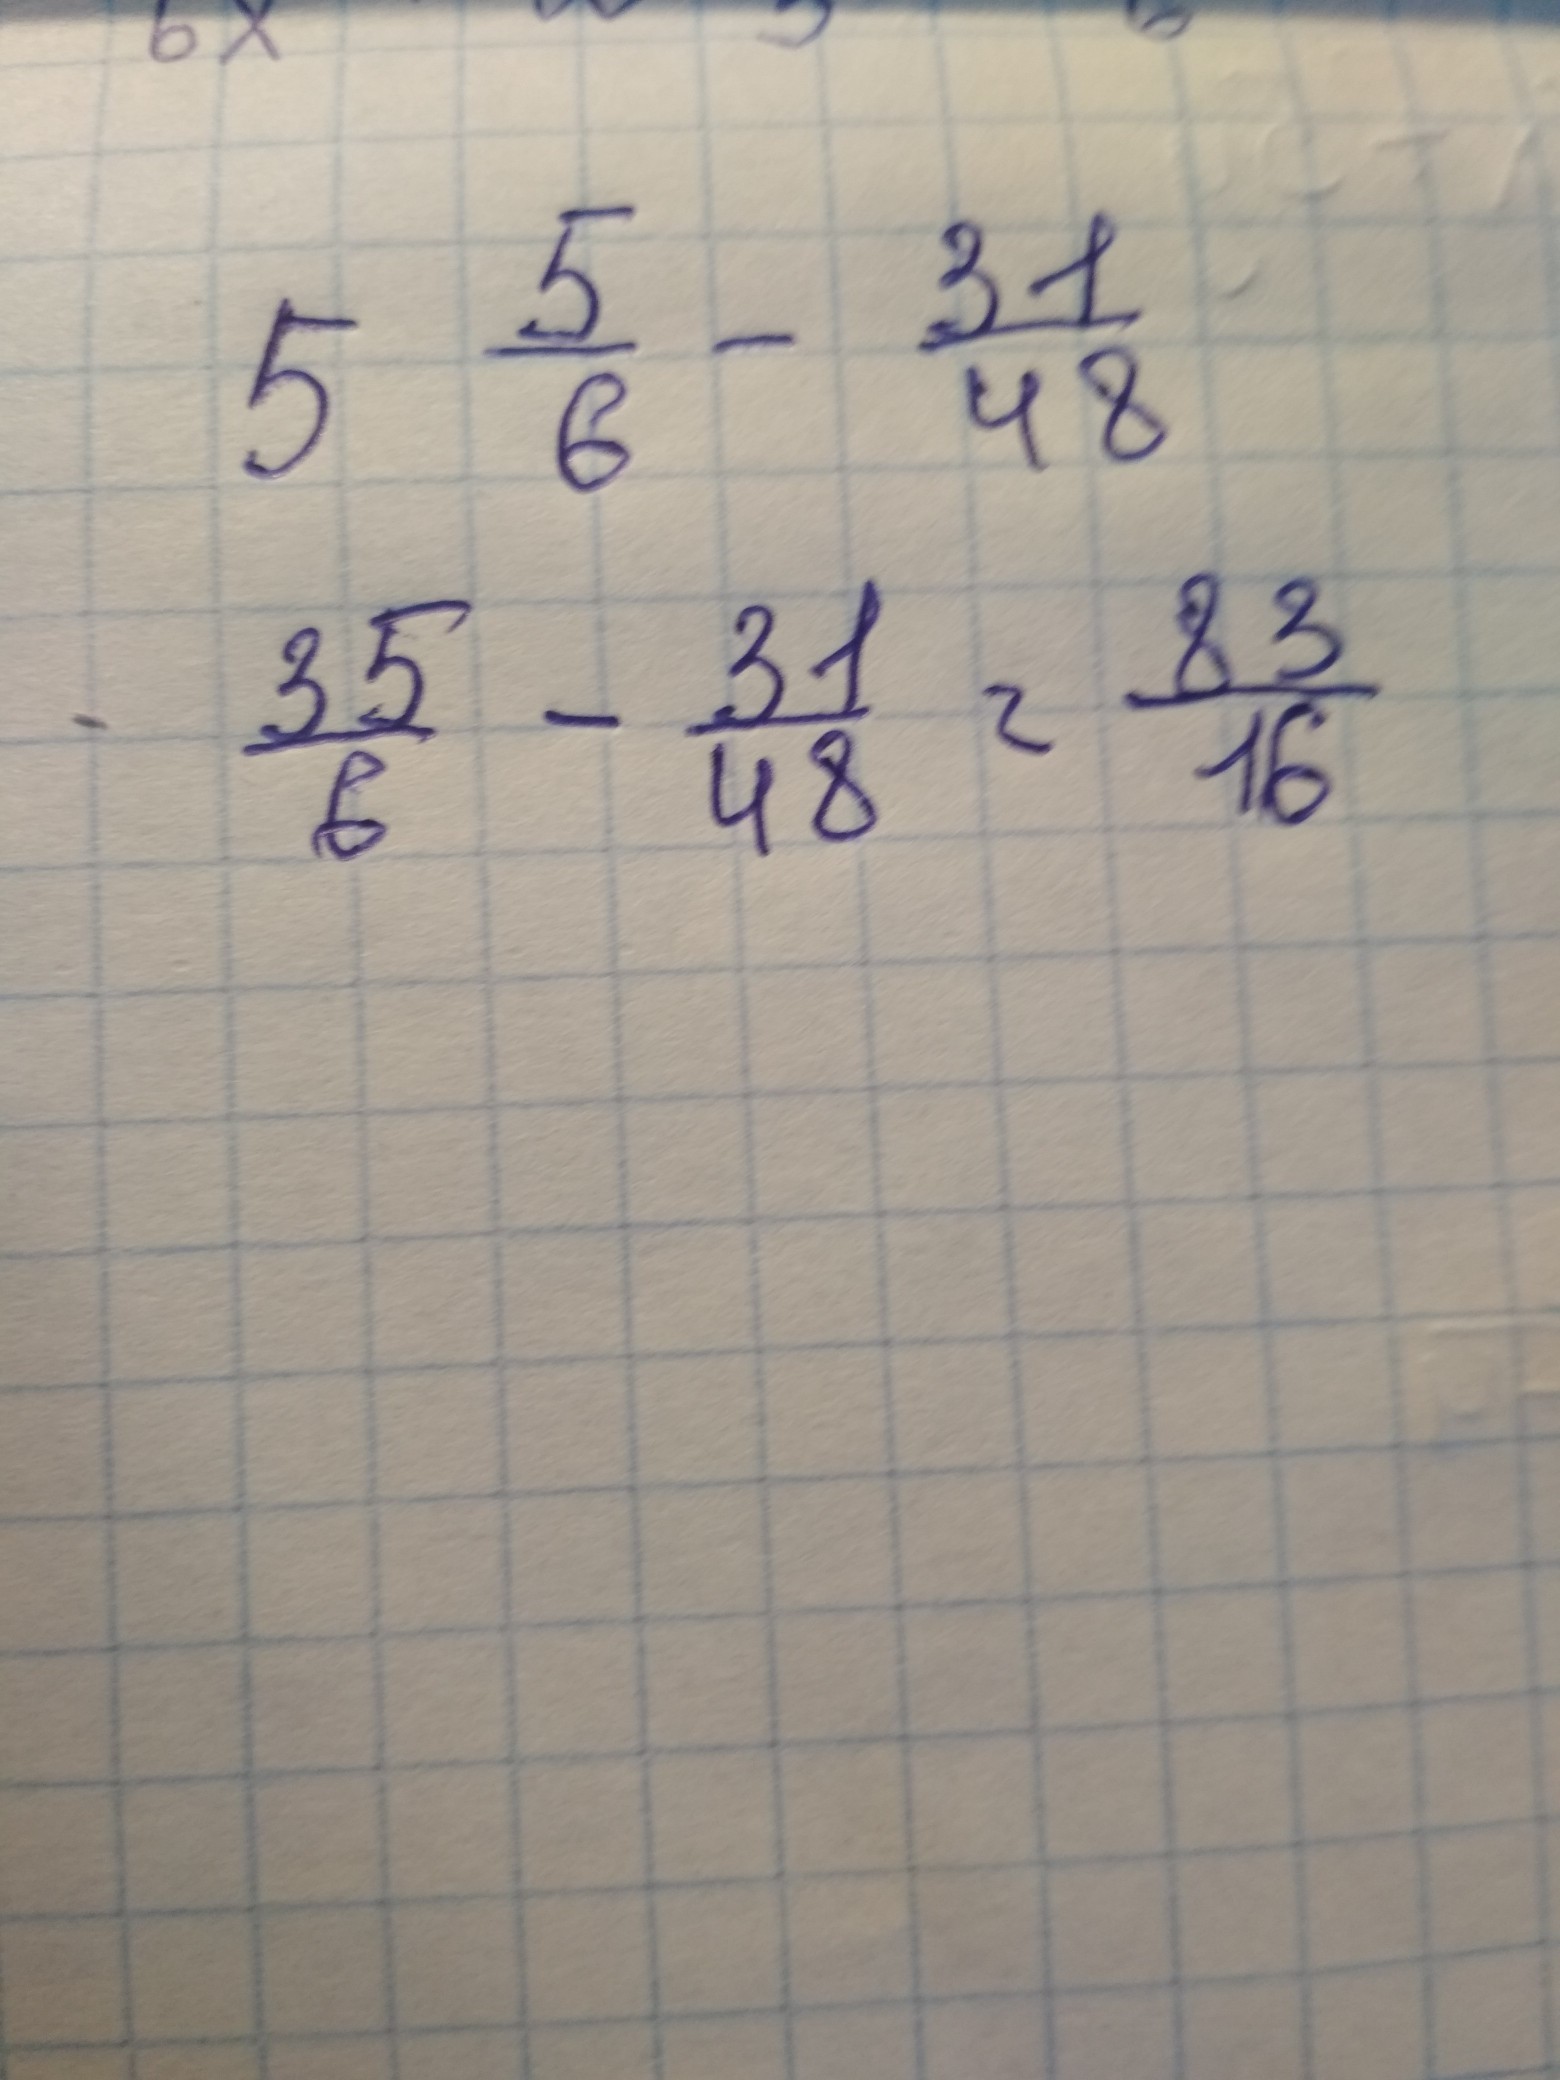 6x
5 5/6 - 31/48
35/6 - 31/48 = 83/16